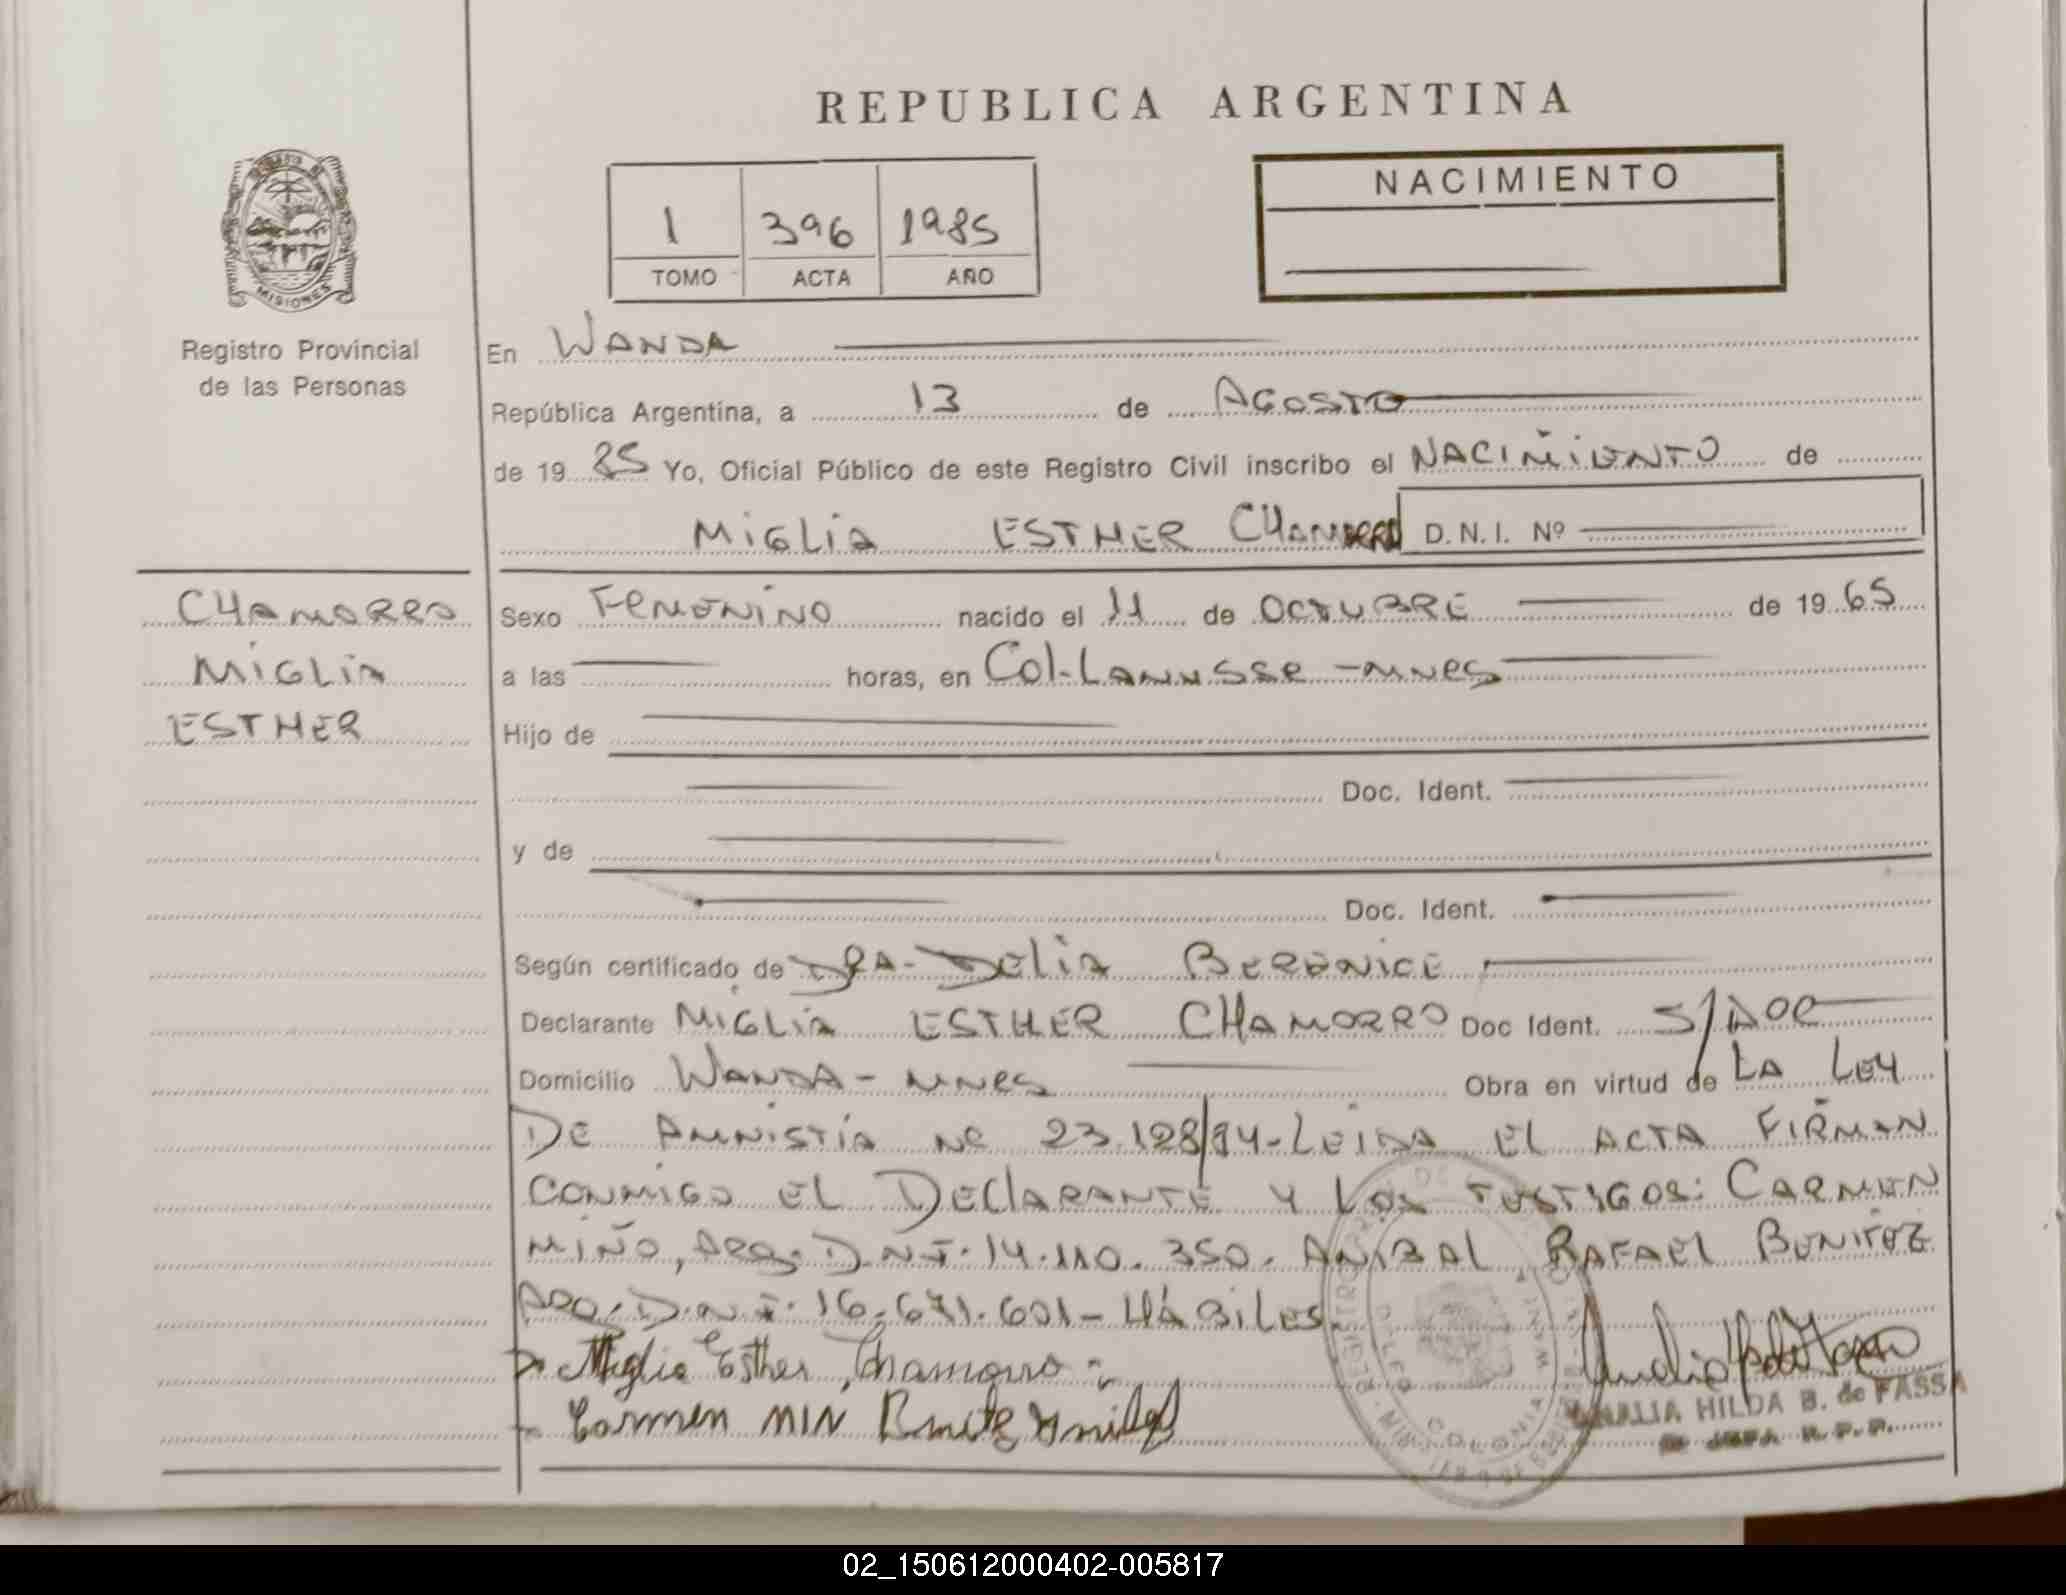 REPUBLICA ARGENTINA
MISIONES
Registro Provincial
de las Personas
1 396 1985
TOMO ACTA AÑO
NACIMIENTO
En WANDA
República Argentina, a 13 de AGOSTO
de 1985 Yo, Oficial Público de este Registro Civil inscribo el NACIMIENTO de
MIGLIA ESTHER CHAMORRO D.N.I. Nº
CHAMORRO
MIGLIA
ESTHER
Sexo FEMENINO nacido el 11 de OCTUBRE de 1965
a las horas, en Col-LANUSSE -MNES
Hijo de
Doc. Ident.
y de
Doc. Ident.
Según certificado de DRA-DELIA BERENICE
Declarante MIGLIA ESTHER CHAMORRO Doc Ident. S/DOC
Domicilio WANDA - MNES Obra en virtud de LA LEY
DE AMNISTIA Nº 23.128/84-LEIDA EL ACTA FIRMAN
CONMIGO EL DECLARANTE Y LOS TESTIGOS: CARMEN
MIÑO, ARG. D.N.I. 14.110.350. ANIBAL RAFAEL BENITEZ
ARG. D.N.I. 16.671.601- HÁBILES.
Miglia Esther Chamorro
Carmen MIN
AMALIA HILDA B. de FASSA
JEFA R.P.P.
COLONIA WANDA
02_150612000402-005817